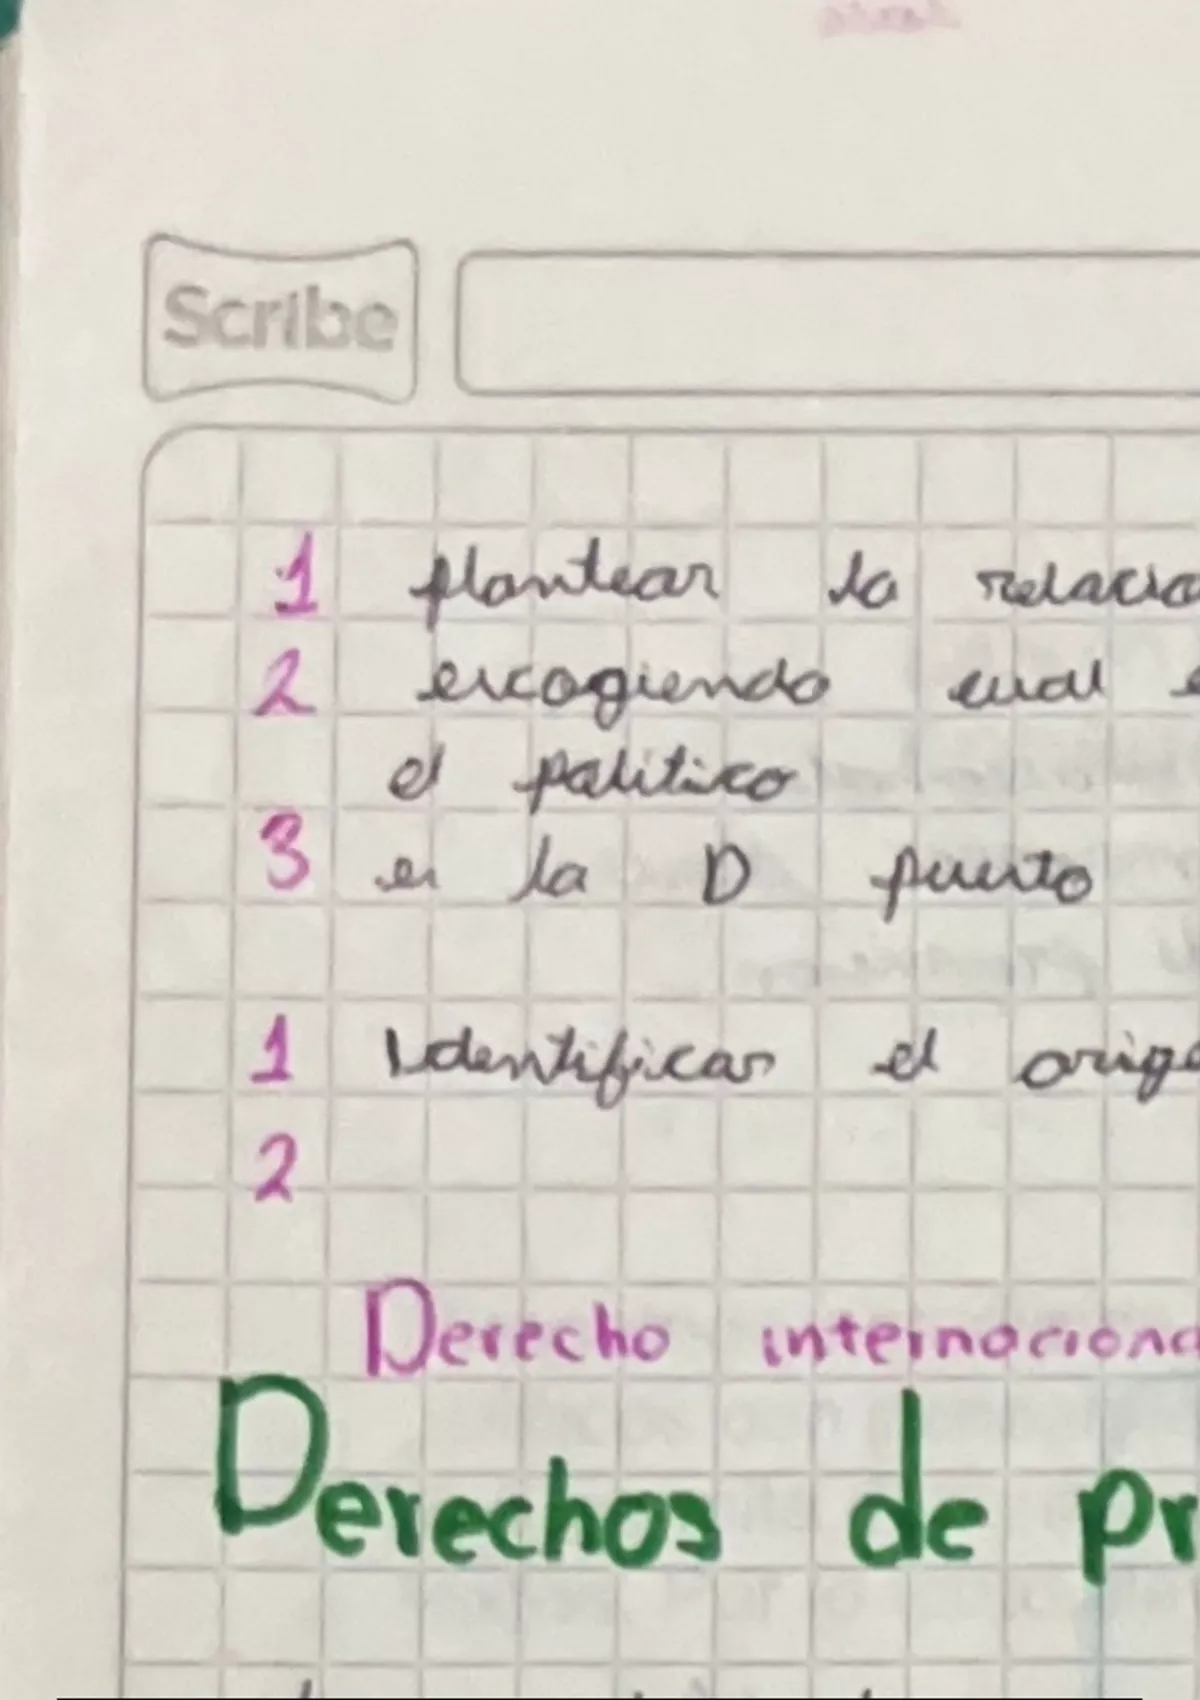 Scribe
1 plantear la relacio
2 escogiendo cual e
el politico
3 en la D puerto
1 Identificar el orige
2
Derecho internaciona
Derechos de pr